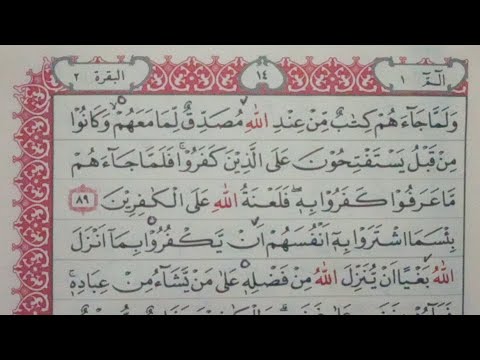 الٓمّٓ ١
١٤
البقرة ٢
وَلَمَّا جَآءَهُمْ كِتٰبٌ مِّنْ عِنْدِ اللّٰهِ مُصَدِّقٌ لِّمَا مَعَهُمْ وَكَانُوْا
مِنْ قَبْلُ يَسْتَفْتِحُوْنَ عَلَى الَّذِيْنَ كَفَرُوْا ۚ فَلَمَّا جَآءَهُمْ
مَّا عَرَفُوْا كَفَرُوْا بِهٖ ۖ فَلَعْنَةُ اللّٰهِ عَلَى الْكٰفِرِيْنَ ٨٩
بِئْسَمَا اشْتَرَوْا بِهٖٓ اَنْفُسَهُمْ اَنْ يَّكْفُرُوْا بِمَآ اَنْزَلَ
اللّٰهُ بَغْيًا اَنْ يُّنَزِّلَ اللّٰهُ مِنْ فَضْلِهٖ عَلٰى مَنْ يَّشَآءُ مِنْ عِبَادِهٖ ۚ